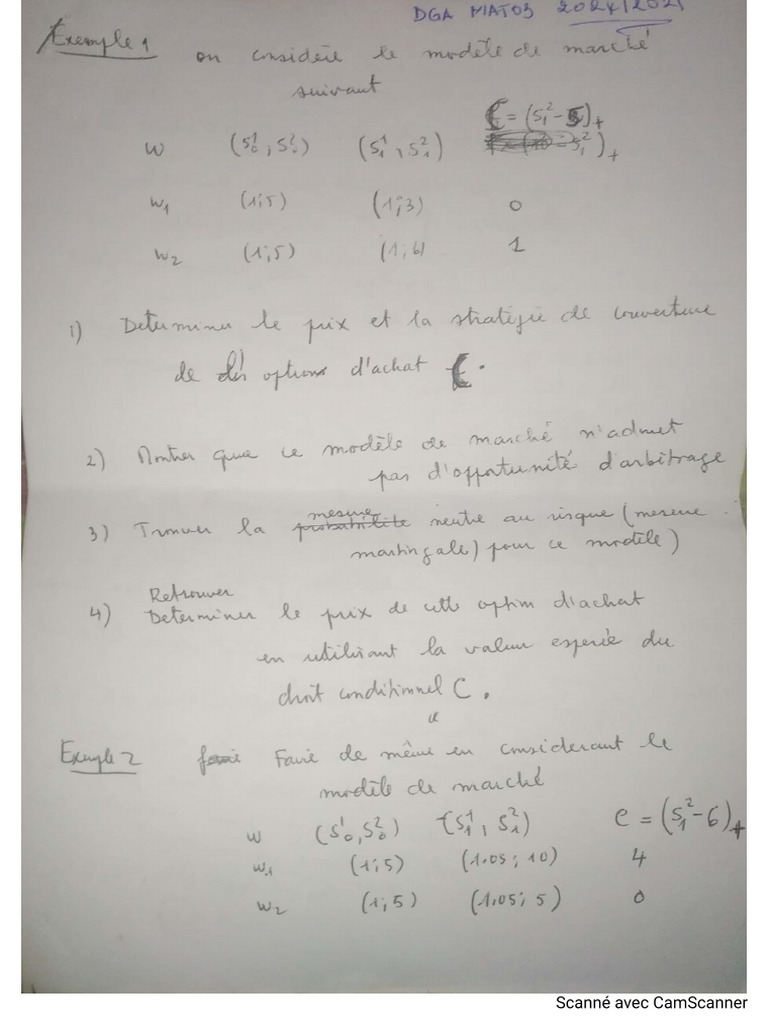 DGA MAT03 2024/2025
Exemple 1 on considère le modèle de marché
suivant
C = (S₁² - 5)₊
w (S₀¹, S₀²) (S₁¹, S₁²)
w₁ (1;5) (1;3) 0
w₂ (1;5) (1;6) 1
1) Determiner le prix et la stratégie de couverture
de options d'achat C.
2) Montrer que ce modèle de marché n'admet
pas d'opportunité d'arbitrage
mesure
3) Trouver la probabilité neutre au risque (mesure
martingale) pour ce modèle)
Retrouver
4) Determiner le prix de cette option d'achat
en utilisant la valeur esperée du
droit conditionnel C.
Exemple 2 Faire de même en considerant le
modèle de marché
w (S₀¹, S₀²) (S₁¹, S₁²) C = (S₁² - 6)₊
w₁ (1;5) (1.05; 10) 4
w₂ (1;5) (1.05; 5) 0
Scanné avec CamScanner